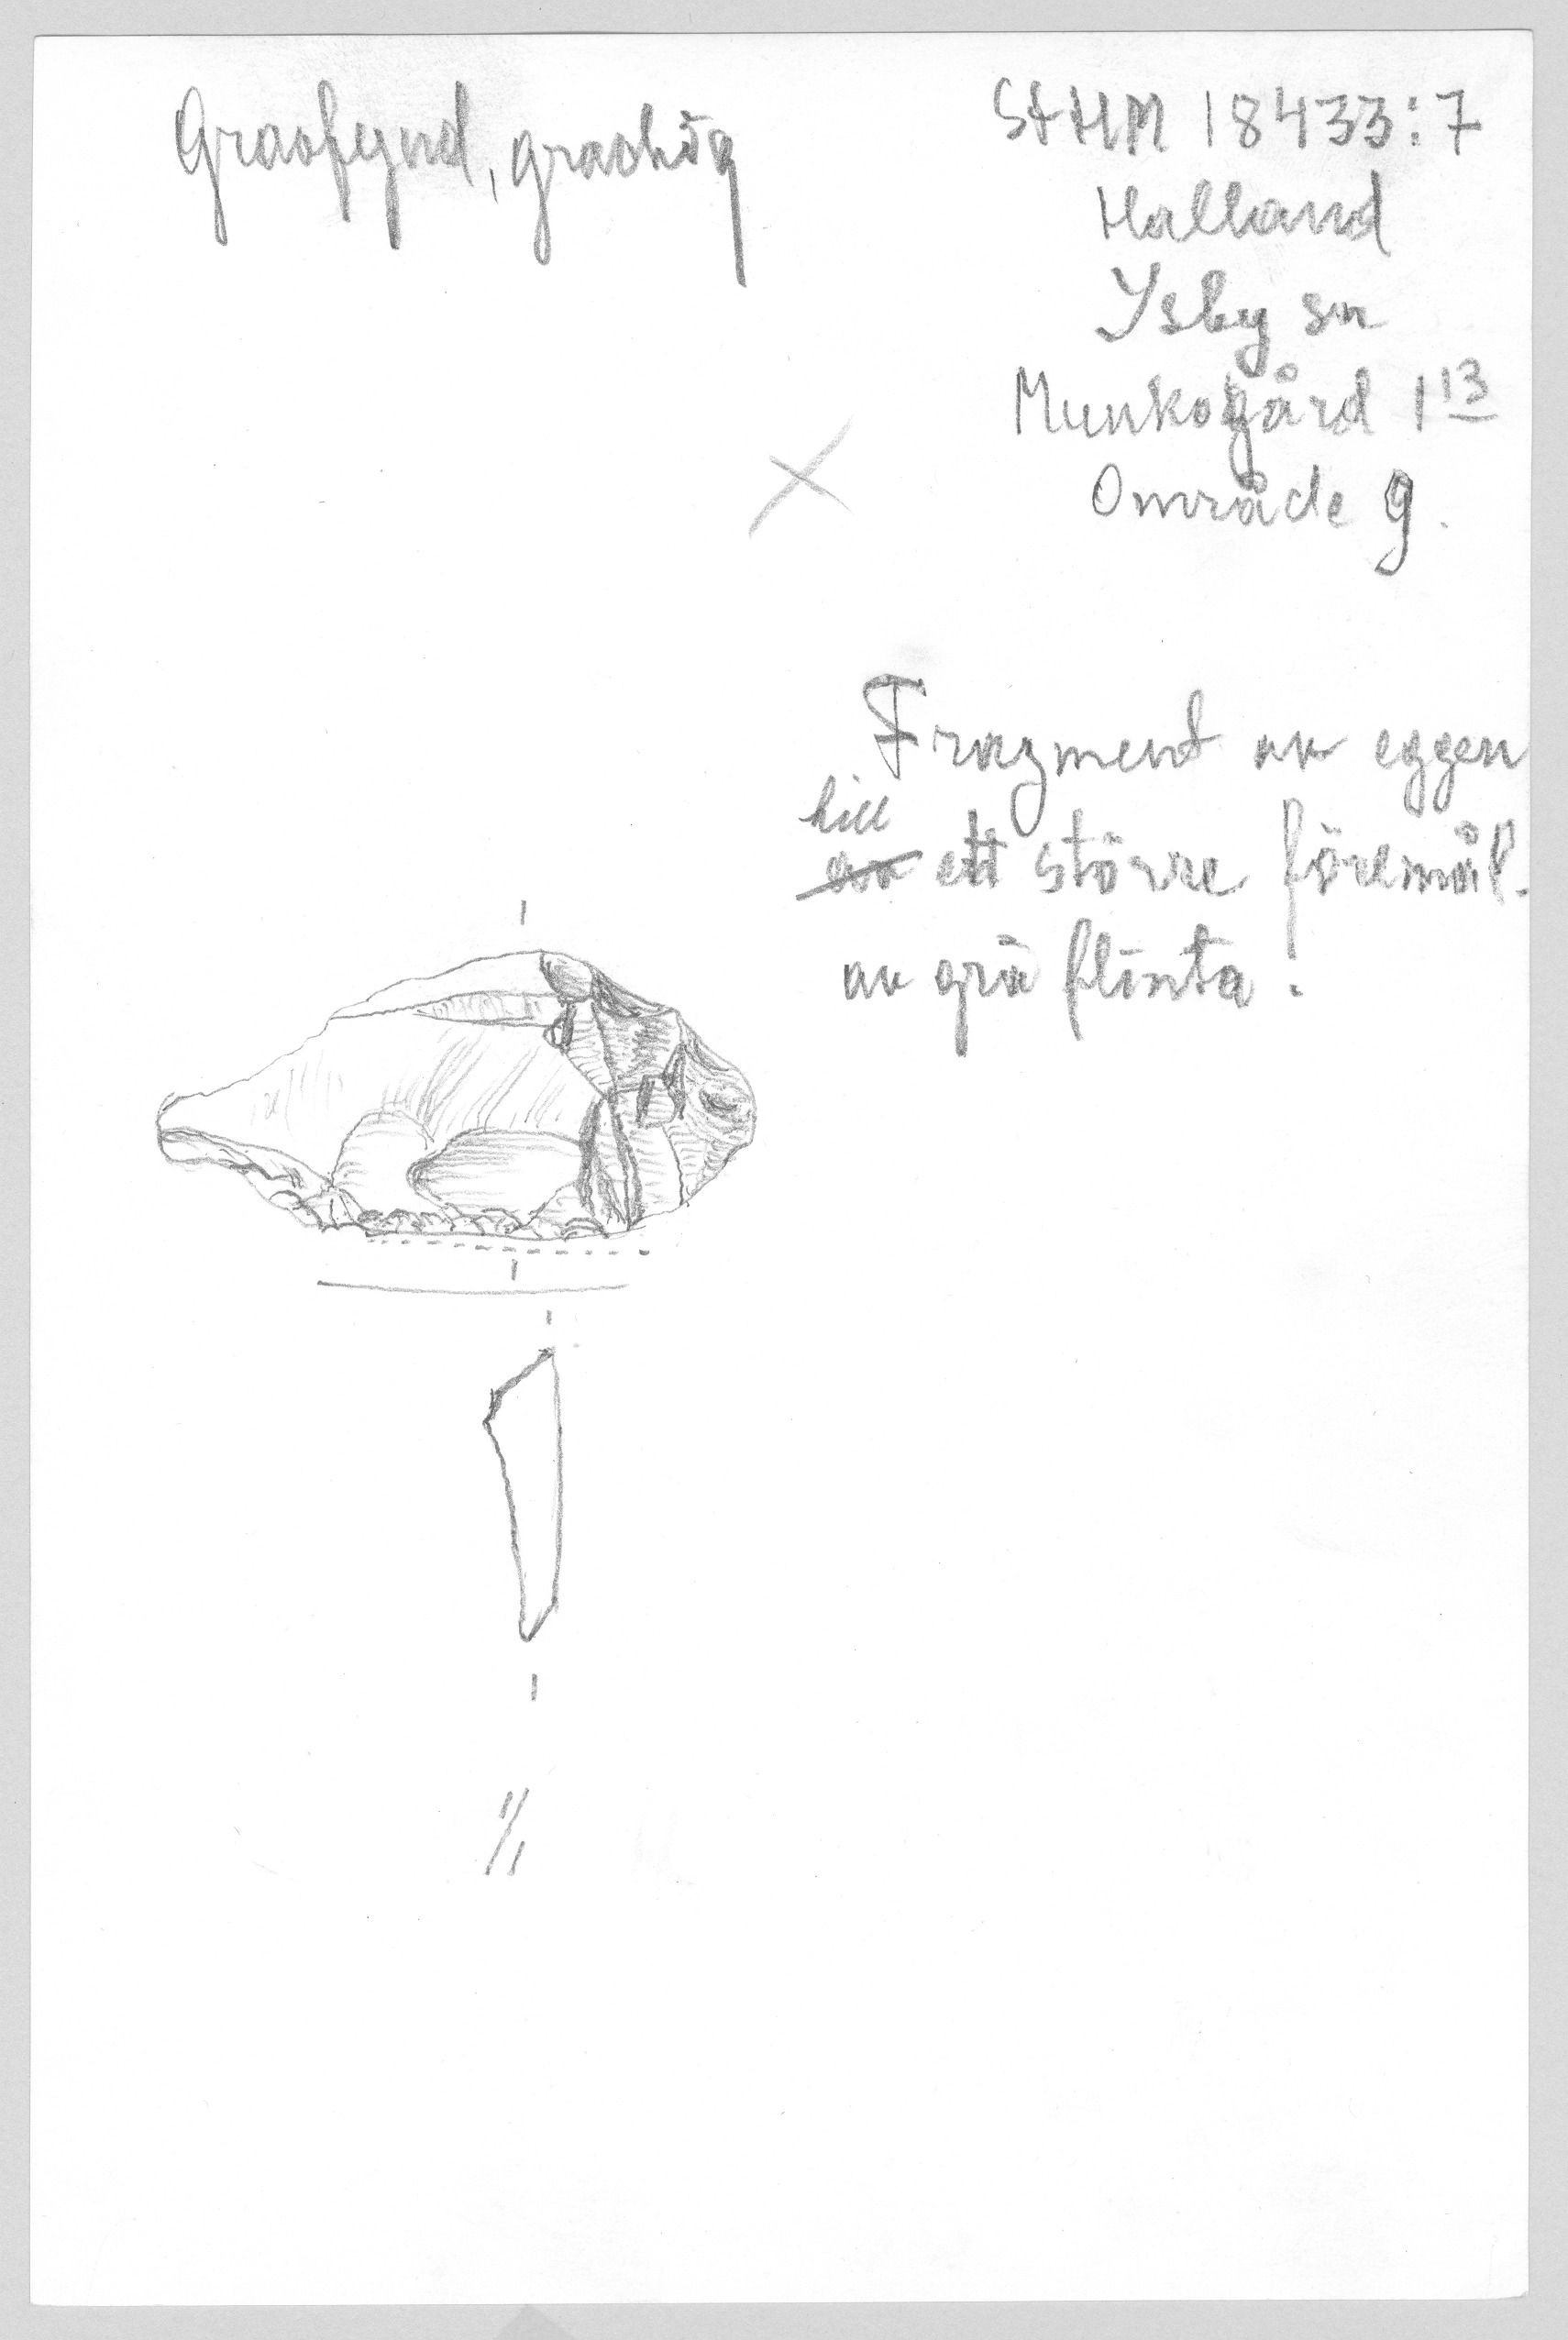 Gravfynd, gravhög
StHM 18433:7
Halland
Ysby sn
Munkagård 1 13
Område 9.
Fragment av eggen
till
av ett större föremål.
av grå flinta.
1/1